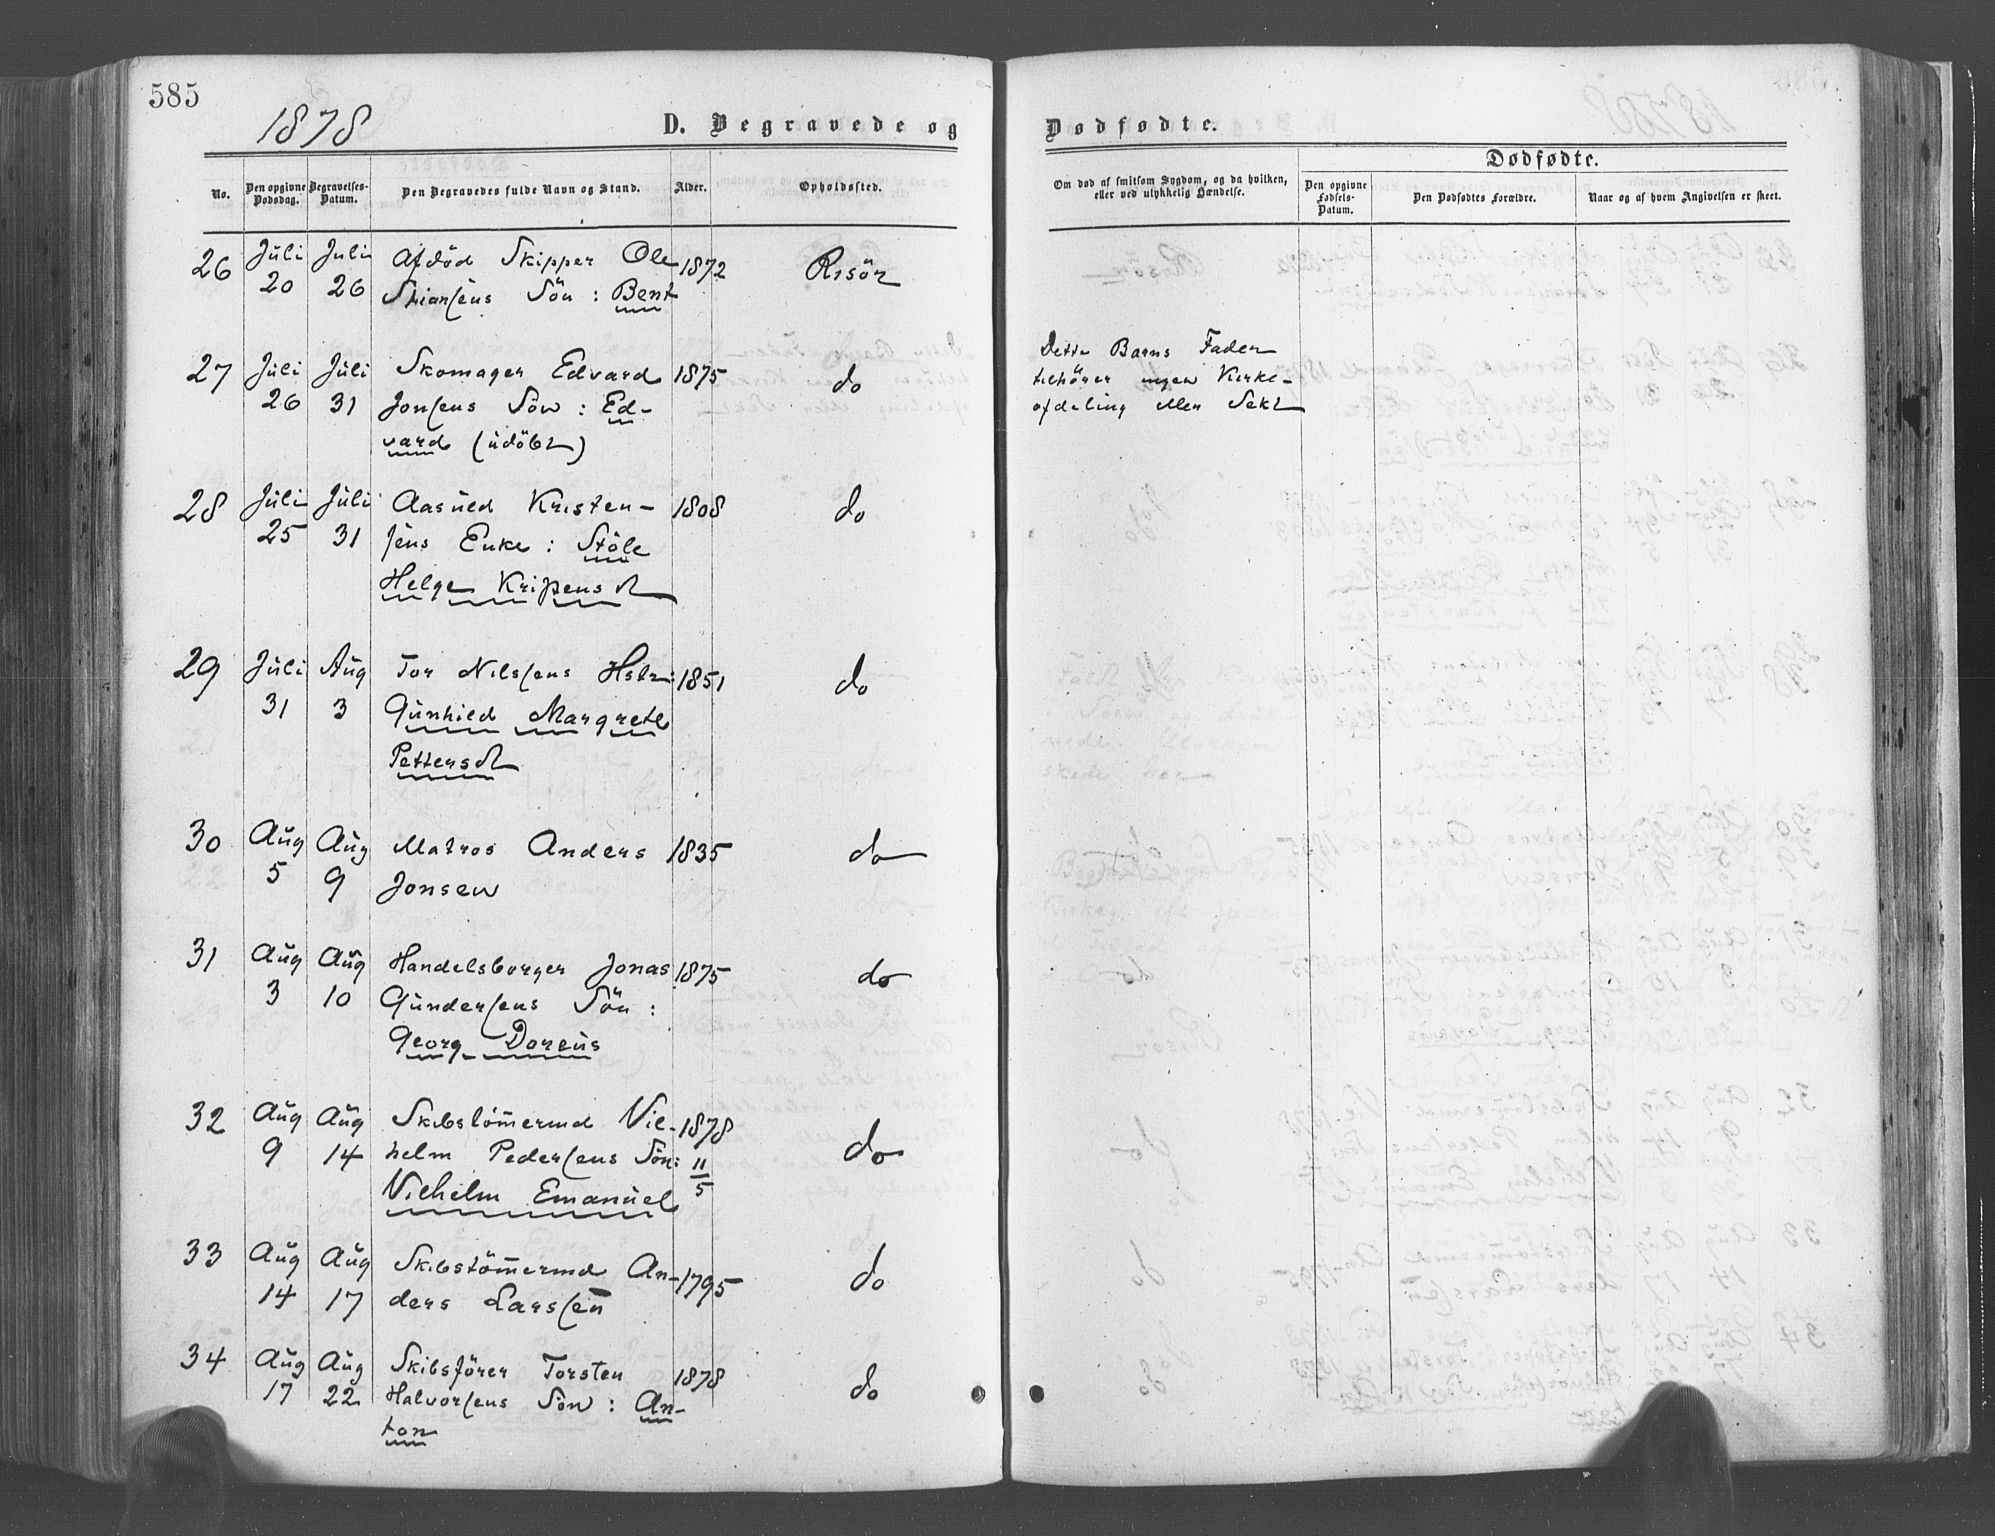 585
1878
D. Begravede og
Dødfødte.
Dødfødte.
No.
Den opgivne Dødsdag.
Begravelses-Datum.
Den Begravedes fulde Navn og Stand.
Alder.
Opholdssted.
Om død af smitsom Sygdom, og da hvilken, eller ved ulykkelig Hændelse.
Den opgivne Fødsels-Datum.
Den Dødfødtes Forældre.
Naar og af hvem Angivelsen er skeet.
26 Juli Juli Afdöd Skipper Ole 1872 Risör
20 26 Stiansens Sön : Bent
27 Juli Juli Skomager Edvard 1875 do
26 31 Jonsens Sön : Ed-
vard (udöbt)
Dette Barns Fader
tilhörer ingen Kirke-
afdeling eller Sekt
28 Juli Juli Aasuld Kristen- 1808 do
25 31 sens Enke : Stöle
Helge Krispensdt
29 Juli Aug Tor Nilssens Hstr: 1851 do
31 3 Gunhild Margrete
Pettersdt
30 Aug Aug Matros Anders 1835 do
5 9 Jonsen
31 Aug Aug Handelsborger Jonas 1875 do
3 10 Gundersens Sön :
Georg Doreus
32 Aug Aug Skibstömermd Vil- 1878 do
9 14 helm Pedersens Sön: 11/5
Vilhelm Emanuel
33 Aug Aug Skibstömermd An- 1795 do
14 17 ders Larsen
34 Aug Aug Skibsförer Torsten 1878 do
17 22 Halvorsens Sön : An-
ton